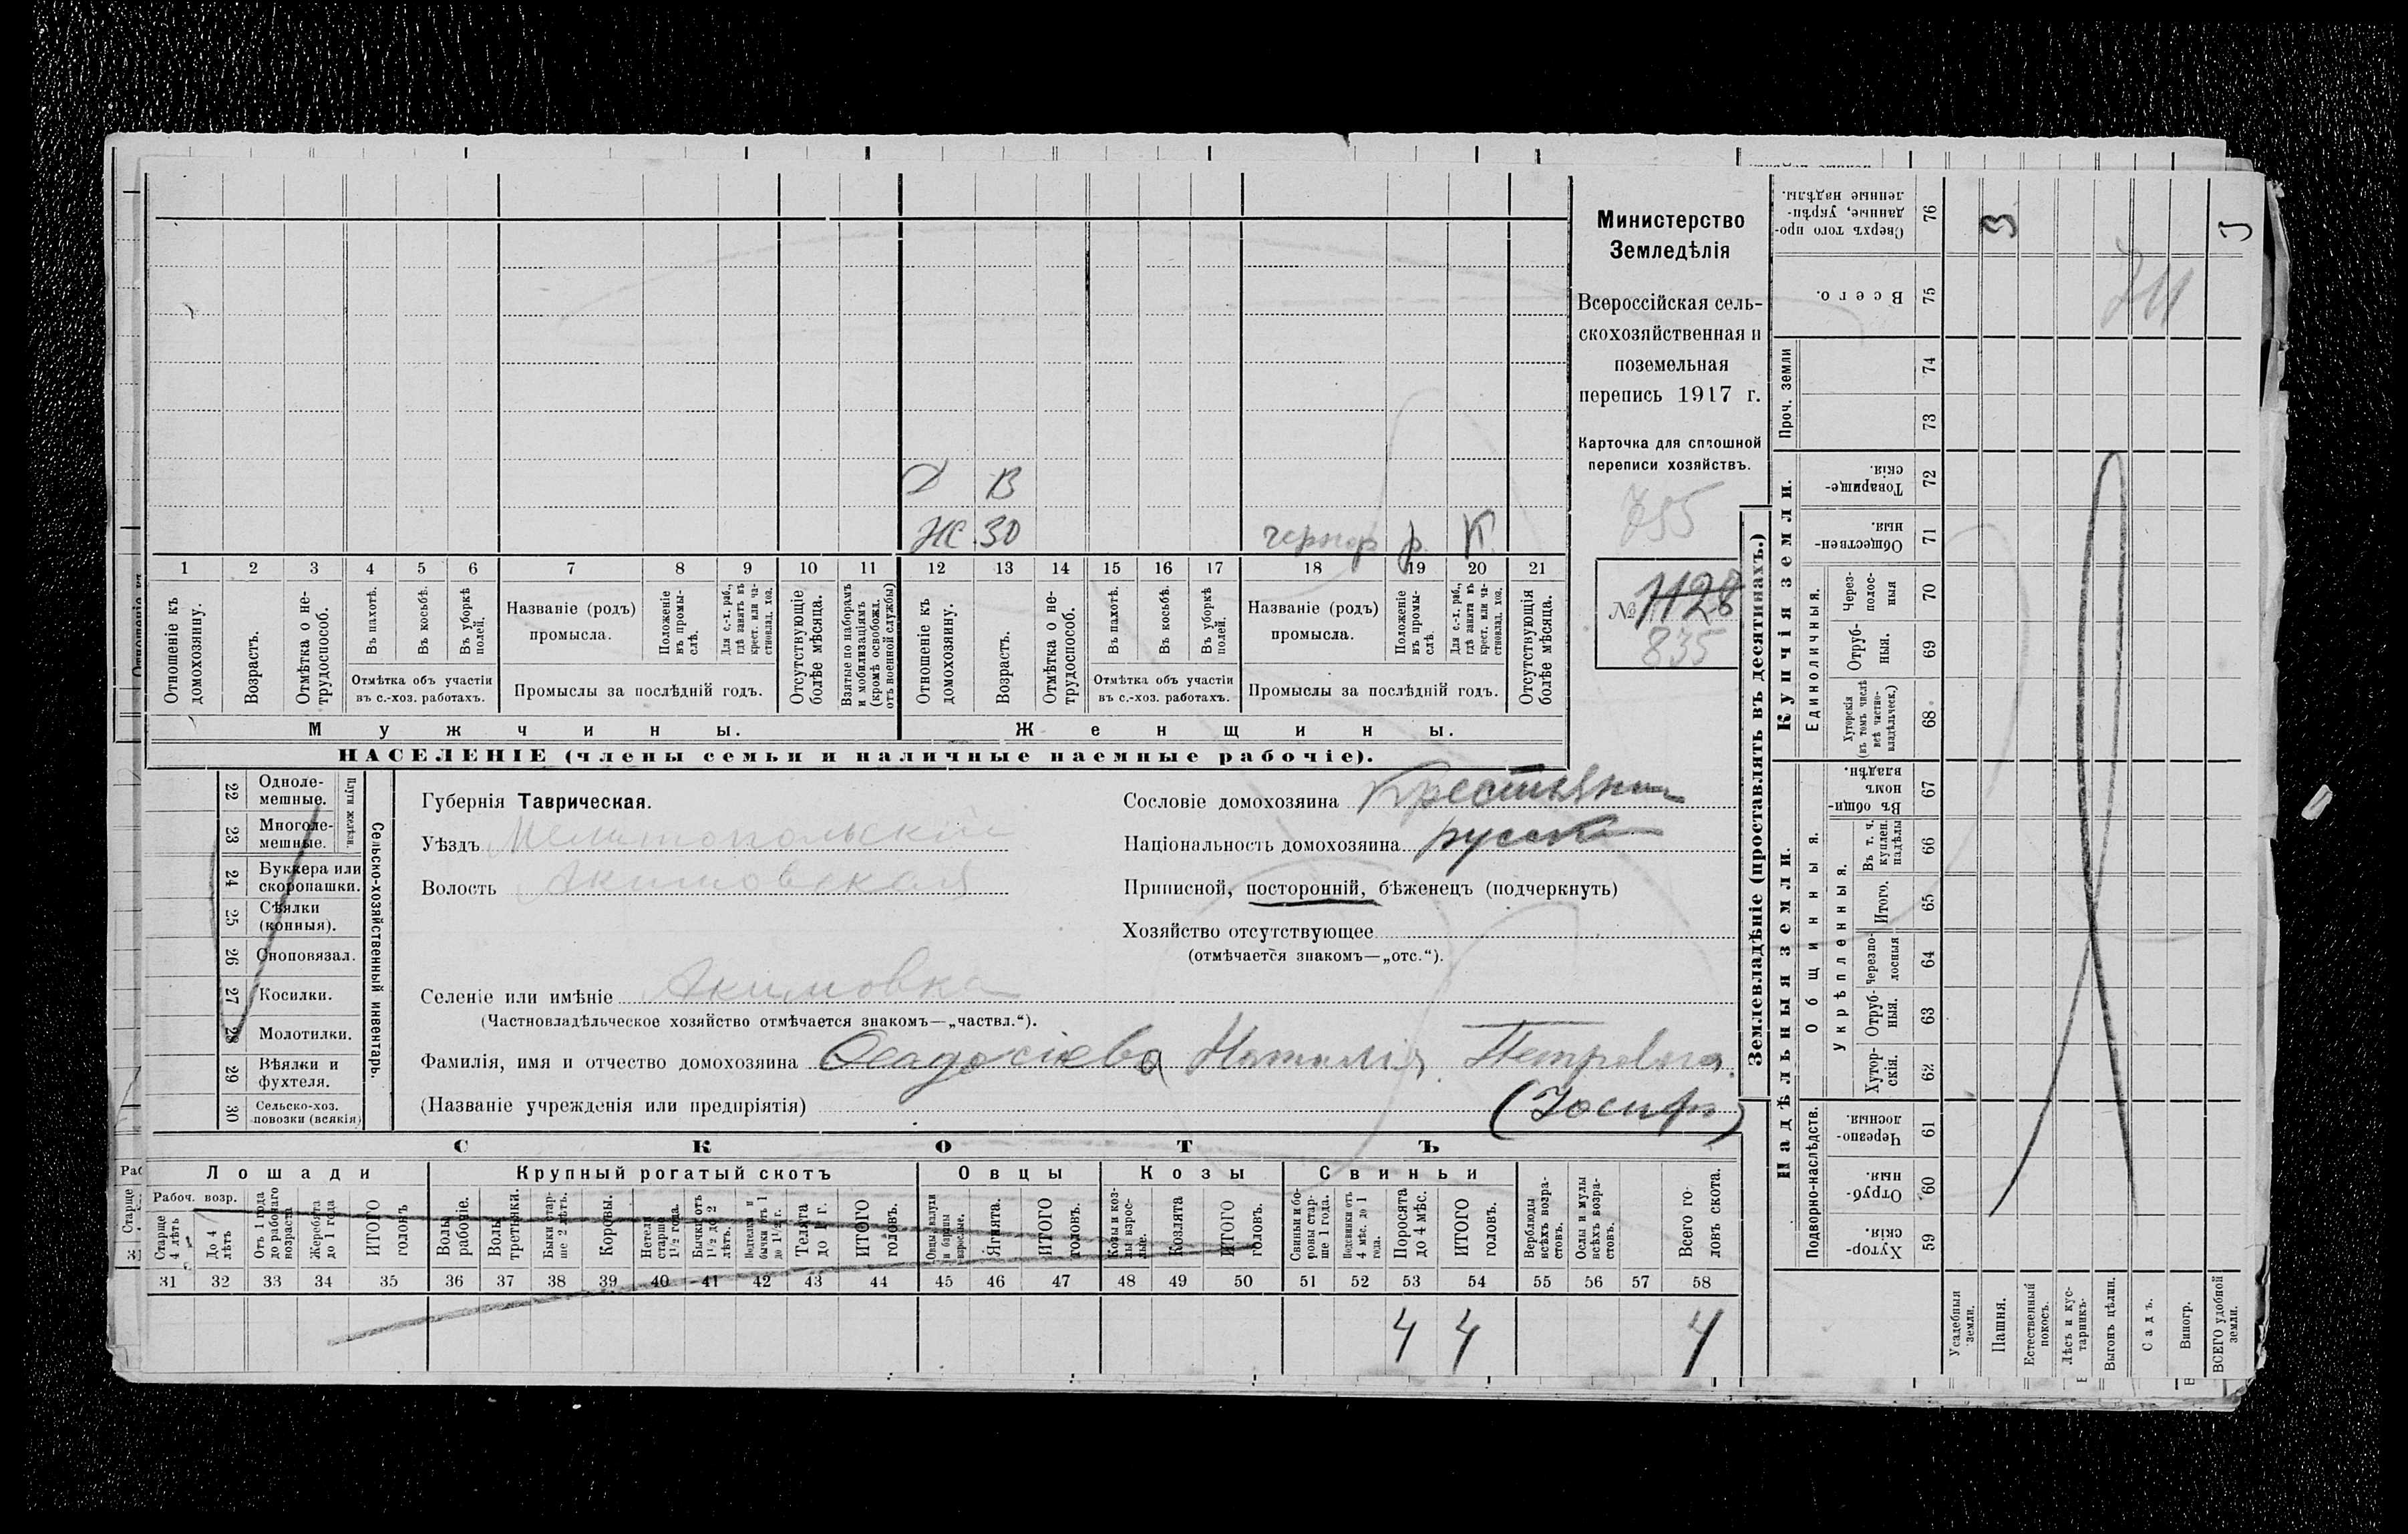 Министерство
Земледѣлія
Всероссійская сель-
скохозяйственная и
поземельная
перепись 1917 г.
Карточка для сплошной
переписи хозяйствъ.
755
№ 1128
835
Д В
Ж 30 чернор р. К
1 2 3 4 5 6 7 8 9 10 11 12 13 14 15 16 17 18 19 20 21
Отношеніе къ домохозяину.
Возрастъ.
Отмѣтка о не-трудоспособ.
Въ пахотѣ.
Въ косьбѣ.
Въ уборкѣ полей.
Отмѣтка объ участіи
въ с.-хоз. работахъ.
Названіе (родъ)
промысла.
Положеніе въ промы-слѣ.
Для с.-х. раб., гдѣ занятъ въ крест. или ча-стновлад. хоз.
Промыслы за послѣдній годъ.
Отсутствующіе болѣе мѣсяца.
Взятые по наборамъ и мобилизаціямъ (кромѣ освобожд. отъ военной службы)
Отношеніе къ домохозяину.
Возрастъ.
Отмѣтка о не-трудоспособ.
Въ пахотѣ.
Въ косьбѣ.
Въ уборкѣ полей.
Отмѣтка объ участіи
въ с.-хоз. работахъ.
Названіе (родъ)
промысла.
Положеніе въ промы-слѣ.
Для с.-х. раб., гдѣ занята въ крест. или ча-стновлад. хоз.
Промыслы за послѣдній годъ.
Отсутствующія болѣе мѣсяца.
Мужчины.
Женщины.
НАСЕЛЕНІЕ (члены семьи и наличные наемные рабочіе).
22 Одноле-мешные.
23 Многоле-мешные.
Плуги желѣзн.
24 Буккера или скоропашки.
25 Сѣялки (конныя).
26 Сноповязал.
27 Косилки.
28 Молотилки.
29 Вѣялки и фухтеля.
30 Сельско-хоз. повозки (всякія)
Сельско-хозяйственный инвентарь.
Губернія Таврическая.
Уѣздъ Мелитопольскій
Волость Акимовская
Селеніе или имѣніе Акимовка
(Частновладѣльческое хозяйство отмѣчается знакомъ—„частвл.“).
Фамилія, имя и отчество домохозяина Наталія Петровна
(Названіе учрежденія или предпріятія) (Іосифъ)
Сословіе домохозяина Крестьянин
Національность домохозяина русск
Приписной, посторонній, бѣженецъ (подчеркнуть)
Хозяйство отсутствующее
(отмѣчается знакомъ—„отс.“).
СКОТЪ
Лошади
Крупный рогатый скотъ
Овцы
Козы
Свиньи
Рабоч. возр.
Старше 4 лѣтъ
До 4 лѣтъ
Отъ 1 года до рабочаго возраста
Жеребята до 1 года
ИТОГО головъ
Волы рабочіе.
Волы третьяки.
Быки стар-ше 2 лѣтъ.
Коровы.
Нетели старше 1½ года.
Бычки отъ 1½ до 2 лѣтъ.
Подтелки и бычки отъ 1 до 1½ г.
Телята до 1 г.
ИТОГО головъ.
Овцы, валухи и бараны взрослые.
Ягнята.
ИТОГО головъ.
Козы и коз-лы взрос-лые.
Козлята
ИТОГО головъ.
Свиньи и бо-ровы стар-ше 1 года.
Подсвинки отъ 4 мѣс. до 1 года.
Поросята до 4 мѣс.
ИТОГО головъ.
Верблюды всѣхъ возра-стовъ.
Ослы и мулы всѣхъ возра-стовъ.
Всего го-ловъ скота.
31 32 33 34 35 36 37 38 39 40 41 42 43 44 45 46 47 48 49 50 51 52 53 54 55 56 57 58
4 4 4
Землевладѣніе (проставлять въ десятинахъ.)
Надѣльныя земли.
Купчія земли.
Проч. земли
Подворно-наслѣдств.
Общинныя.
Укрѣпленныя.
Единоличныя.
Хутор-скія. 59
Отруб-ныя. 60
Черезпо-лосныя. 61
Хутор-скія. 62
Отруб-ныя. 63
Черезпо-лосныя 64
Итого. 65
Въ т. ч. куплен. надѣлы 66
Въ общи-номъ владѣн. 67
Хуторскія (въ томъ числѣ всѣ частно-владѣльческ.) 68
Отруб-ныя. 69
Через-полос-ныя 70
Обществен-ныя. 71
Товарище-скія. 72
73
74
Всего. 75
Сверхъ того про-данные, укрѣп-ленные надѣлы. 76
Усадебныя земли.
Пашня.
Естественный покосъ.
Лѣсъ и кус-тарникъ.
Выгонъ цѣлин.
Садъ.
Виногр.
ВСЕГО удобной земли.
3